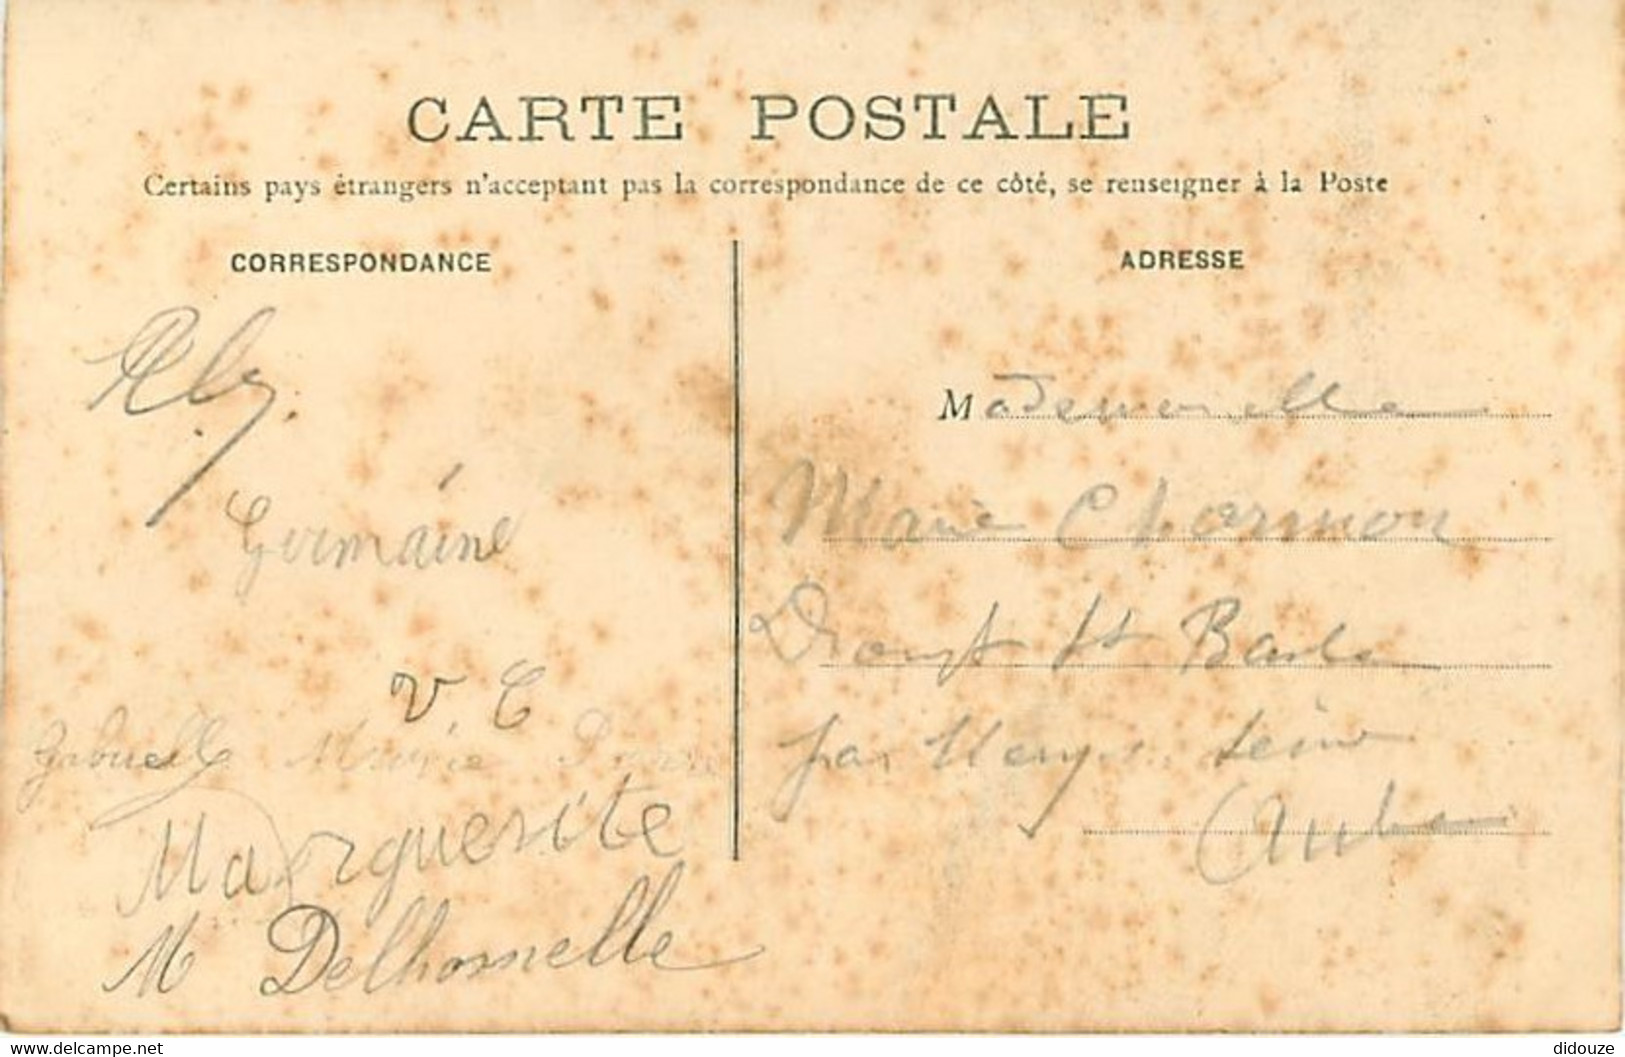 CARTE POSTALE
Certains pays étrangers n'acceptant pas la correspondance de ce côté, se renseigner à la Poste
CORRESPONDANCE
Germaine
V C
Gabrielle Marie
Marguerite
M Delhomelle
ADRESSE
Mademoiselle
Marie Charmon
Droupt St Basle
par Mery s. Seine
Aube
www.delcampe.net
didouze